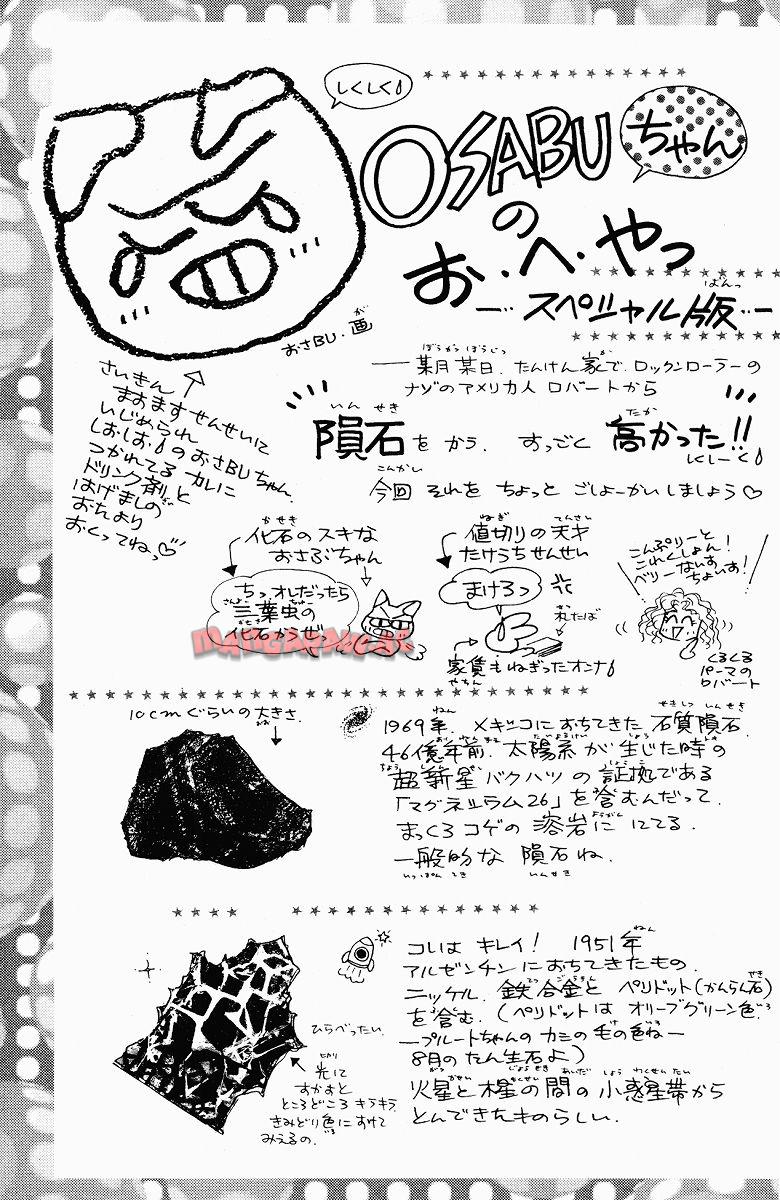 しくしく♪
OSABU ちゃん
の
お・へ・やっ
―…スペシャル版…―
おさBU・画
さいきん
ますますせんせいに
いじめられ
しおしお♪のおさBUちゃん
つかれてる カレに
ドリンク剤と
はげましの
おたより
おくってねっ♡
――某月某日、たんけん家で、ロックンローラーの
ナゾのアメリカ人 ロバートから
隕石を かう. すっごく 高かった!!
しくしーく♪
今回 それを ちょっと ごしょーかいしましょう♡
化石のスキな
おさぶちゃん
ちっ、オレだったら
三葉虫の
化石かうぜっ
値切りの天才
たけうちせんせい
まけろっ
札たば
家賃もねぎったオンナ♪
こんぷりーと
これくしょん!
ベリーないす
ちょいす!
くるくる
パーマの
ロバート
10cmぐらいの大きさ.
1969年、メキシコにおちてきた 石質隕石.
46億年前. 太陽系が生じた時の
超新星バクハツの証拠である
「マグネシウム26」を含むんだって.
まっくろコゲの溶岩に にてる.
一般的な 隕石ね.
コレは キレイ! 1951年
アルゼンチンにおちてきたもの.
ニッケル. 鉄合金と ペリドット(かんらん石)
を含む. (ペリドットは オリーブグリーン色.
―プルートちゃんの カミの毛の色ね―
8月のたん生石よ)
火星と木星の間の小惑星帯から
とんできたものらしい.
ひらべったい.
光に
すかすと
ところどころ キラキラ
きみどり色にすけて
みえるの.